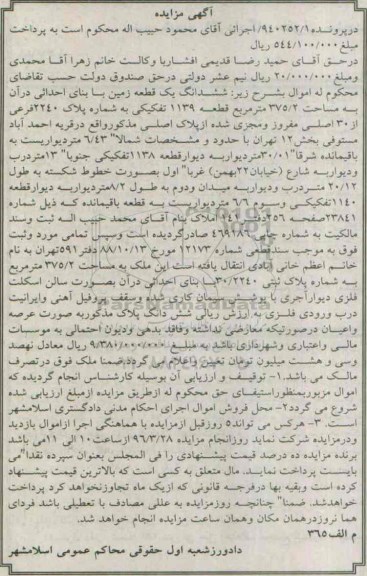 آگهی مزایده
درپرونده۹۴۰۲۵۲/۱ اجرائی آقای محمود حبیب اله محکوم است به پرداخت
مبلغ ۵۴۴/۱۰۰/۰۰۰ ریال
درحق آقای حمید رضا قدیمی افشاربا وکالت خانم زهرا آقا محمدی
ومبلغ ۲۰/۰۰۰/۰۰۰ ریال نیم عشر دولتی درحق صندوق دولت حسب تقاضای
محکوم له اموال بشرح زیر: ششدانگ یک قطعه زمین با بنای احداثی درآن
به مساحت ۳۷۵/۲ مترمربع قطعه ۱۱۳۹ تفکیکی به شماره پلاک ۲۲۴۰فرعی
از ۳۰ اصلی مفروز ومجزی شده ازپلاک اصلی مذکورواقع درقریه احمد آباد
مستوفی بخش۱۲ تهران با حدود و مشخصات شمالا" ۶/۴۳ متردیواریست به
باقیمانده شرقا"۳۰/۰۱متردیواربه دیوارقطعه ۱۱۳۸تفکیکی جنوبا" ۱۳متردرب
ودیواربه شارع (خیابان۲۲بهمن) غربا" اول بصورت خطوط شکسته به طول
۲۰/۱۲ متردرب ودیواربه میدان ودوم به طول ۸/۲متردیواربه دیوارقطعه
۱۱۴۰تفکیکی وسوم ۶/۶ متردیواریست به قطعه باقیمانده که ذیل شماره
۲۳۸۴۱صفحه ۲۵۶دفتر ۱۴۱ املاک بنام آقای محمد حبیب اله ثبت وسند
مالکیت به شماره چاپی صادرگردیده است وسپس تمامی مورد وثبت
فوق به موجب سند قطعی شماره ۱۲۱۷۳ مورخ ۸۸/۱۰/۱۳ دفتر ۵۹۱تهران به نام
خانم اعظم خانی آبادی انتقال یافته است این ملک به مساحت ۳۷۵/۲ مترمربع
به شماره پلاک ثبتی ۳۰/۲۲۴۰با بنای احداثی درآن بصورت سالن اسکلت
فلزی دیوارآجری با سیمان کاری شده وسقف پروفیل آهنی وایرانیت
درب ورودی فلزی به ارزش ریالی شش دانگ پلاک مذکوربه صورت عرصه
واعیان درصورتیکه معارضی نداشته وفاقد بدهی ودیون احتمالی به موسسات
مالی واعتباری وشهرداری باشد به مبلغ ۹/۳۸۰/۰۰۰/۰۰۰ ریال معادل نهصد
وسی و هشت میلیون تومان تعیین واعلام می گردد.ضمنا ملک فوق درتصرف
مالک می باشد.۱- توقیف و ارزیابی آن بوسیله کارشناس انجام گردیده که
اموال مزبوربمنظوراستیفای حق محکوم له ازطریق مزایده ازمبلغ ارزیابی شده
شروع می گردد۲- محل فروش اموال اجرای احکام مدنی دادگستری اسلامشهر
است. ۳- هرکس می تواند۵ روزقبل ازمزایده با هماهنگی اجرا ازاموال بازدید
ودرمزایده شرکت نماید روزانجام مزایده ۹۶/۳/۲۸ ازساعت۱۰ الی ۱۱می باشد
برنده مزایده ده درصد قیمت پیشنهادی را فی المجلس بعنوان سپرده نقدا"می
بایست پرداخت نماید. مال متعلق به کسی است که بالاترین قیمت پیشنهاد
کرده است وبقیه بها درفرجه قانونی که ازیک ماه تجاوزنخواهد کرد پرداخت
خواهدشد. ضمنا" چنانچه روزمزایده به عللی مصادف با تعطیلی باشد فردای
هما نروزدرهمان مکان وهمان ساعت مزایده انجام خواهد شد.
م الف۳۶۵
دادورزشعبه اول حقوقی محاکم عمومی اسلامشهر